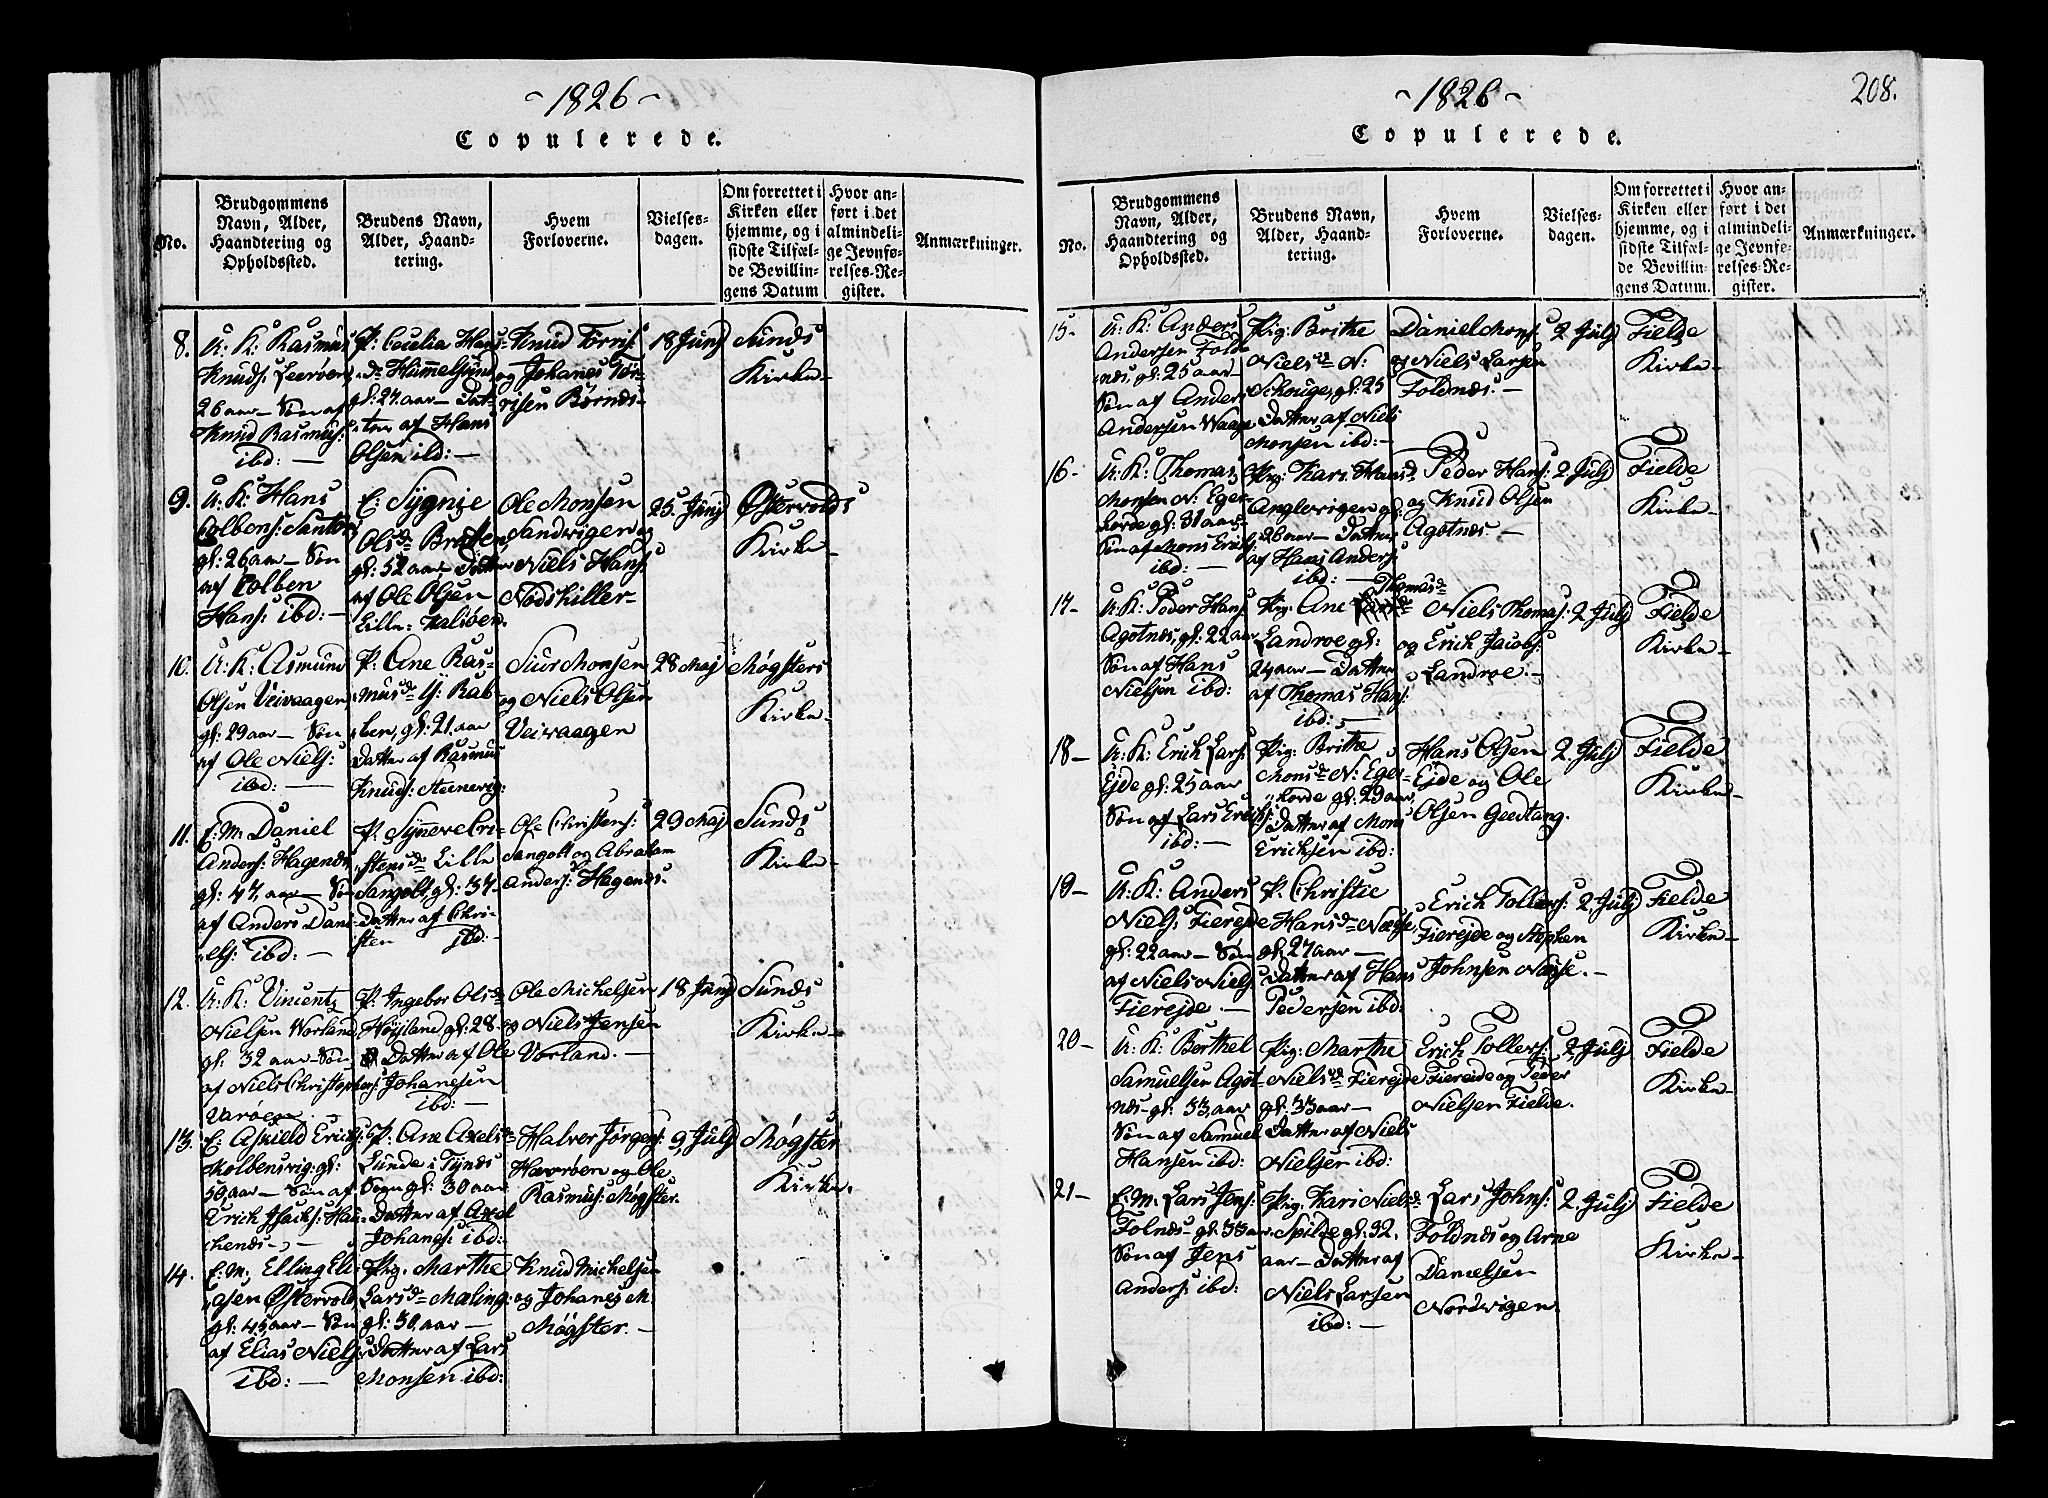 -1826-
Copulerede.
No.
Brudgommens
Navn, Alder,
Haandtering og
Opholdssted.
Brudens Navn,
Alder, Haand-
tering.
Hvem
Forloverne.
Vielses-
dagen.
Om forrettet i
Kirken eller
hjemme, og i
sidste Tilfæl-
de Bevillin-
gens Datum
Hvor an-
ført i det
almindeli-
ge Jevnfø-
relses-Re-
gister.
Anmærkninger.
8.
U: K: Rasmus
Knuds: Leerøen
26 aar — Søn af
Knud Rasmus:
ibd: —
P: Cecilia Hans
dr Hummelsund
gl: 27. aar — Dat-
ter af Hans
Olsen ibd: —
Knud Torris:
og Johanes Tor-
risen Børnes-
18 Junj
Sunds
Kirke -
9.
U: K: Hans
Colbens: Santor
gl: 26 aar — Søn
af Colben
Hans: ibd: —
E: Sygnie
Olsdr Bratten
gl: 52 aar Datter
af Ole Olsen
Lille-Kalsøen.
Ole Monsen
Sandvigen og
Niels Hans:
Nodskiller-
25 Junj
Østervolds
Kirke -
10.
U: K: Asmund
Olsen Veivaagen
gl: 29 aar — Søn
af Ole Niels:
ibd: —
P: Ane Ras-
musdr Y: Rab-
ben, gl: 21. aar
Datter af Rasmus
Knuds: Steenevig:
Siur Monsen
og Niels Olsen
Veivaagen
28 Maj
Møgsters
Kirke -
11.
E: M: Daniel
Anders: Hagenes
gl: 47, aar — Søn
af Anders Dani-
els: ibd: —
P: Synneve Cri-
stensdr Lille
Sangolt gl: 37.
Datter af Chri-
sten ibd: -
Ole Christens:
Sangolt og Abraham
Anders: Hagenes.
29 Maj
Sunds
Kirke -
12.
U: K: Vincentz
Nielsen Vorland
gl: 32 aar — Søn
af Niels Christophers:
Varøen.
P: Ingebor Olsdr
Høysland gl: 28.
Datter af Ole
Johanesen
ibd: —
Ole Michelsen
og Niels Jensen
Vorland. —
18 Junj
Sunds
Kirke -
13.
E: Askield Erichs:
Kolbensvig: gl:
50, aar — Søn af
Erich Isachs: Hau-
kenes -
P: Ane Axelsdr
Lunde i Tysnes
Sogn gl: 30 aar
Datter af Axel
Johans: ibd:
Halver Jørgens:
Hevrøen og Ole
Rasmus: Møgster.
9 Julj
Møgster
Kirke.
14.
E: M, Elling Eli-
asen Østervold,
gl: 45, aar — Søn
af Elias Niels:
ibd: —
Pig: Marthe
Larsdr Mæling:
gl: 30. aar —
Datter af Lars
Monsen ibd:
Knud Michelsen
og Johanes M.
Møgster. —
208.
-1826-
Copulerede.
No.
Brudgommens
Navn, Alder,
Haandtering og
Opholdssted.
Brudens Navn,
Alder, Haand-
tering.
Hvem
Forloverne.
Vielses-
dagen.
Om forrettet i
Kirken eller
hjemme, og i
sidste Tilfæl-
de Bevillin-
gens Datum.
Hvor an-
ført i det
almindeli-
ge Jevnfø-
relses-Re-
gister.
Anmærkninger.
15-
U: K: Anders
Andersen Fold-
nes, gl: 25 aar
Søn af Anders
Andersen Waage
Pig: Brithe
Nielsdr N:
Schouge, gl: 25
Datter af Niels
Monsen ibd: —
Daniel Mons:
og Niels Larsen
Foldnes. —
2 Julj
Fielde
Kirke -
16-
U: K: Thomas
Monsen N: Eger-
horde gl: 31 aar -
Søn af Mons Erichs:
ibd: —
Pig: Kari Hansdr
Anglevigen gl:
26 aar — Datter
af Hans Anders:
ibd: —
Peder Hans:
og Knud Olsen
Agotnes. —
2 Julj
Fielde
Kirke -
17-
U: K: Peder Hans:
Agotnes, gl: 22 aar
Søn af Hans
Nielsen ibd:
Pig: Ane Thomasdr
Landroe gl:
24 aar — Datter
af Thomas Hans:
ibd: —
Niels Thomas:
og Erich Jacobs:
Landroe. —
2 Julj
Fielde
Kirke -
18-
U: K: Erich Lars:
Ejde gl: 25 aar
Søn af Lars Erichs:
ibd: —
Pig: Brithe
Monsdr N: Eger-
horde gl: 29 aar,
Datter af Mons
Erichsen ibd:
Hans Olsen
Ejde og Ole
Olsen Geedtang.
2. Julj
Fielde
Kirke -
19-
U: K: Anders
Niels: Fierejde
gl: 22 aar — Søn
af Niels Niels:
Fierejde. —
P: Christie
Hansdr Næsse,
gl: 27 aar —
Datter af Hans
Pedersen ibd:
Erich Tollers:
Fierejde og Stephen
Johnsen Næsse. —
2. Julj
Fielde
Kirke -
20-
U: K: Berthel
Samuelsen Agot-
nes gl: 33, aar
Søn af Samuel
Hansen ibd:
Pig: Marthe
Nielsdr Fierejde
gl: 33 aar —
Datter af Niels
Nielsen ibd:
Erich Tollers:
Fiereide og Peder
Nielsen Fielde.
2, Julj
Fielde
Kirke -
21-
E: M: Lars Jens:
Folnes - gl: 33 aar.
Søn af Jens
Anders: ibd:
Pig: Kari Nielsdr
Spilde gl: 32.
aar — Datter af
Niels Larsen
ibd: —
Lars Johns:
Foldnes og Arne
Danielsen
Nordvigen.
2. Julj
Fielde
Kirke -